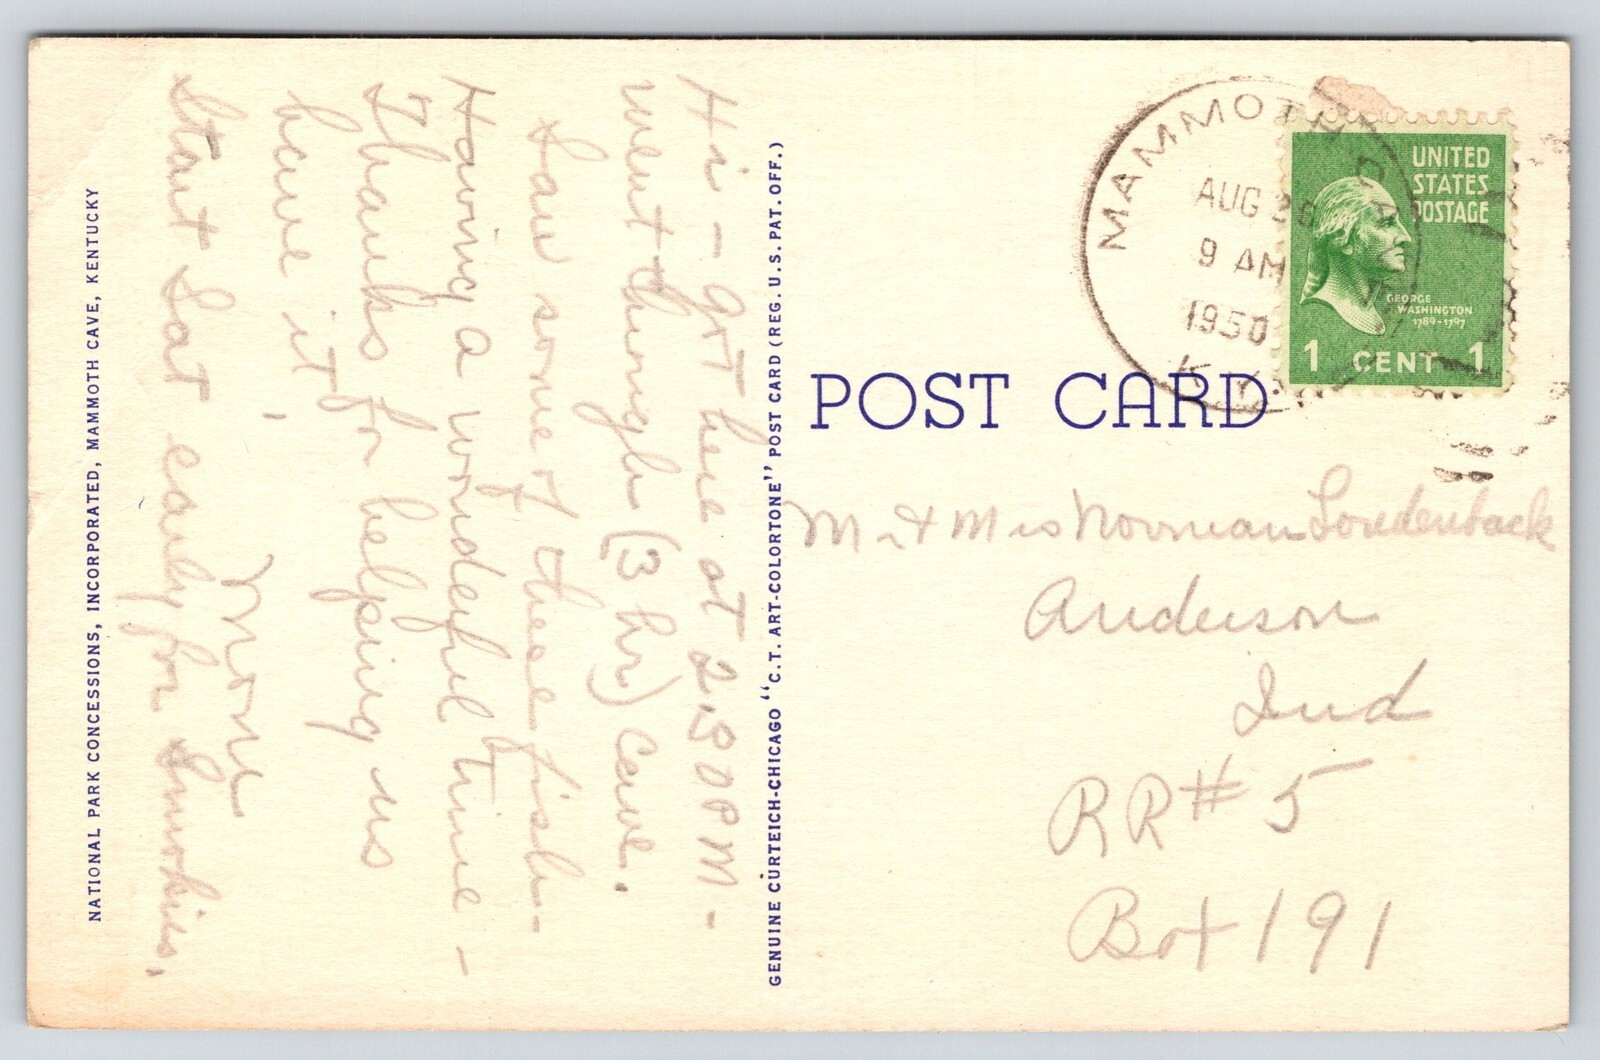 Hi - got here at 2:30 PM -
went through (3 hr) cave.
Saw some of these fish -
Having a wonderful time -
Thanks for helping us
have it,
Mom
Start Sat early for Smokies,
NATIONAL PARK CONCESSIONS, INCORPORATED, MAMMOTH CAVE, KENTUCKY
GENUINE CURTEICH-CHICAGO "C.T. ART-COLORTONE" POST CARD (REG. U.S. PAT. OFF.)
POST CARD
MAMMOTH CAVE
AUG 26
9 AM
1950
KY.
UNITED
STATES
POSTAGE
GEORGE
WASHINGTON
1789-1797
1 CENT 1
Mr & Mrs Norman Loudenback
Anderson
Ind
RR# 5
Box 191